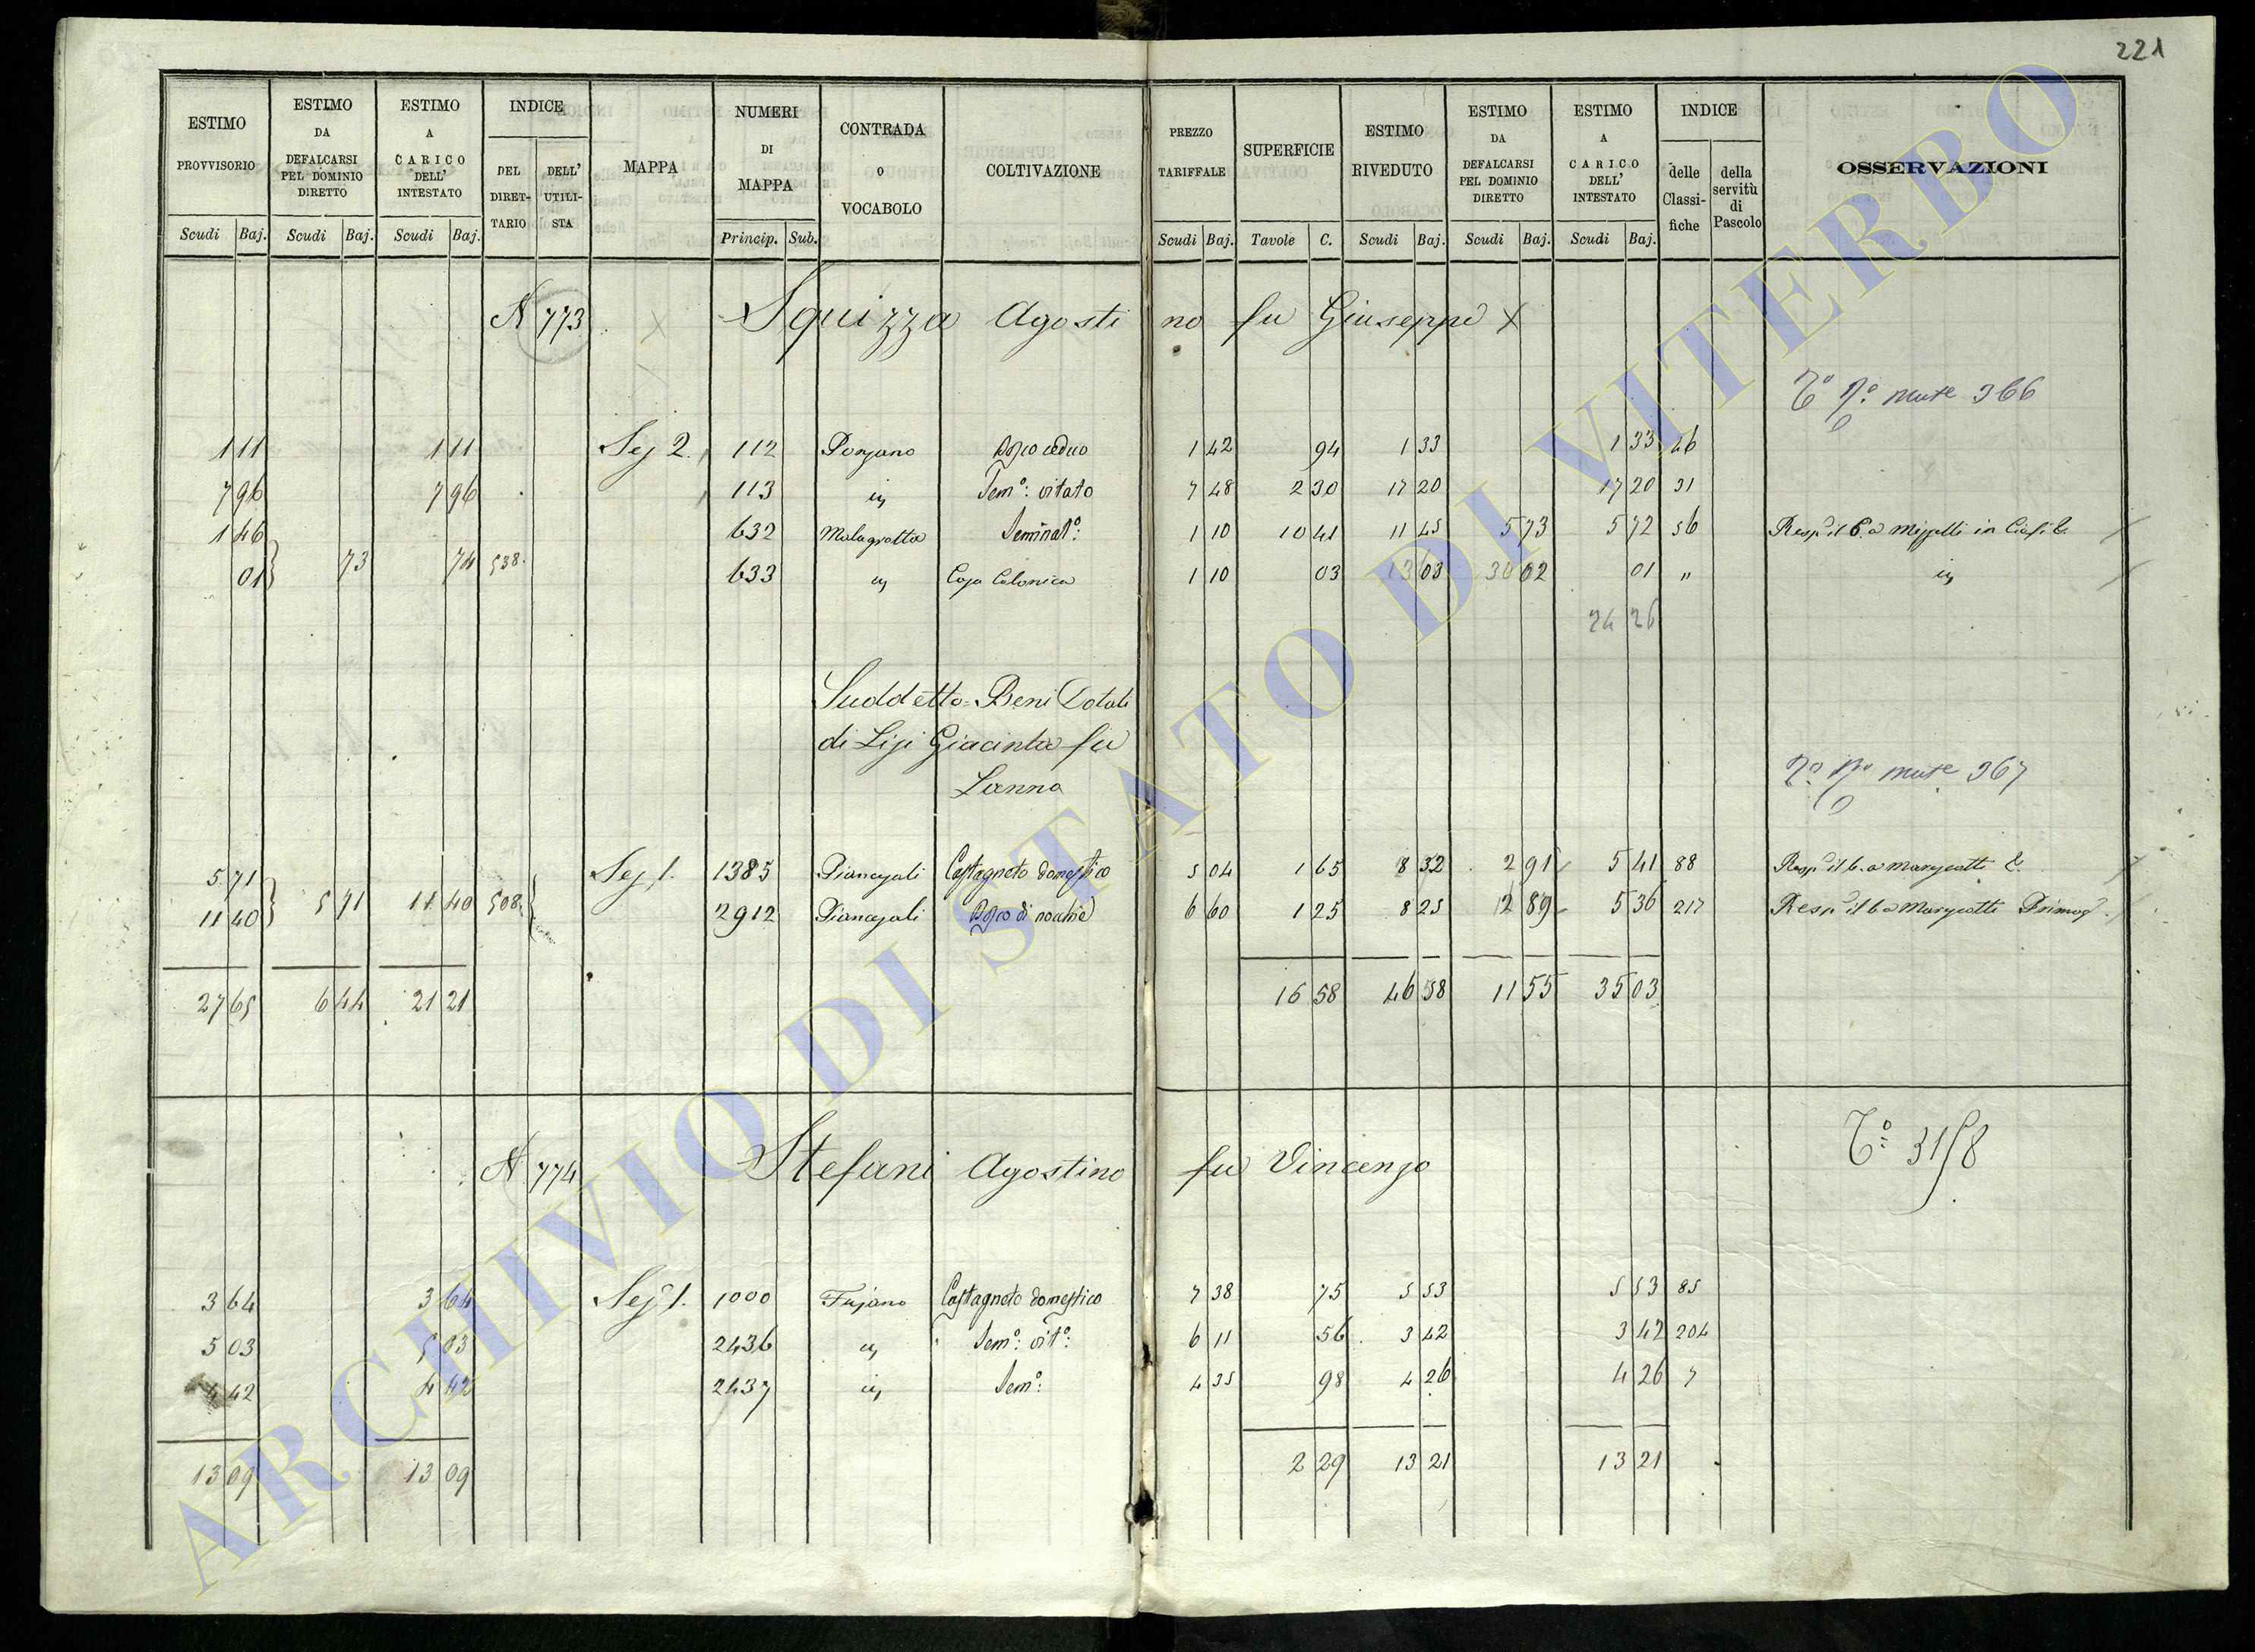 221
ESTIMO PROVVISORIO Scudi Baj. ESTIMO DA DEFALCARSI PEL DOMINIO DIRETTO Scudi Baj. ESTIMO A CARICO DELL' INTESTATO Scudi Baj. INDICE DEL DIRETTARIO DELL' UTILISTA MAPPA NUMERI DI MAPPA Princip. Sub. CONTRADA O VOCABOLO COLTIVAZIONE PREZZO TARIFFALE Scudi Baj. SUPERFICIE Tavole C. ESTIMO RIVEDUTO Scudi Baj. ESTIMO DA DEFALCARSI PEL DOMINIO DIRETTO Scudi Baj. ESTIMO A CARICO DELL' INTESTATO Scudi Baj. INDICE delle Classifiche della servitù di Pascolo OSSERVAZIONI
N 773 Squizza Agostino fu Giuseppe X
366
1 11 1 11 Sez 2. 112 Ponzano Bosco ceduo 1 42 94 1 33 1 33 46
7 96 7 96 113 in Sem.º vitato 7 48 2 30 17 20 17 20 31
1 46 632 Malagrotta Seminat.º 1 10 10 41 11 45 5 73 5 72 56
01 73 74 538. 633 in Casa Colonica 1 10 03 03 02 01 " in
24 26
Suddetto = Beni Dotali
di Lisi Giacinta fu
Zanna
367
5 71 Sez 1. 1385 Piancasali Castagneto domestico 5 04 1 65 8 32 2 91 5 41 88
11 40 5 71 11 40 508. 2912 Piancasali Bosco di nocchie 6 60 1 25 8 25 2 89 5 36 217
27 65 6 44 21 21 16 58 46 58 11 55 35 03
N 774 Stefani Agostino fu Vincenzo
3158
3 64 3 64 Sez 1. 1000 Fujano Castagneto domestico 7 38 75 5 53 5 53 85
5 03 5 03 2436 in Sem.º vit.º 6 11 56 3 42 3 42 204
4 42 4 42 2437 in Sem.º 4 35 98 4 26 4 26 7
13 09 13 09 2 29 13 21 13 21
ARCHIVIO DI STATO DI VITERBO